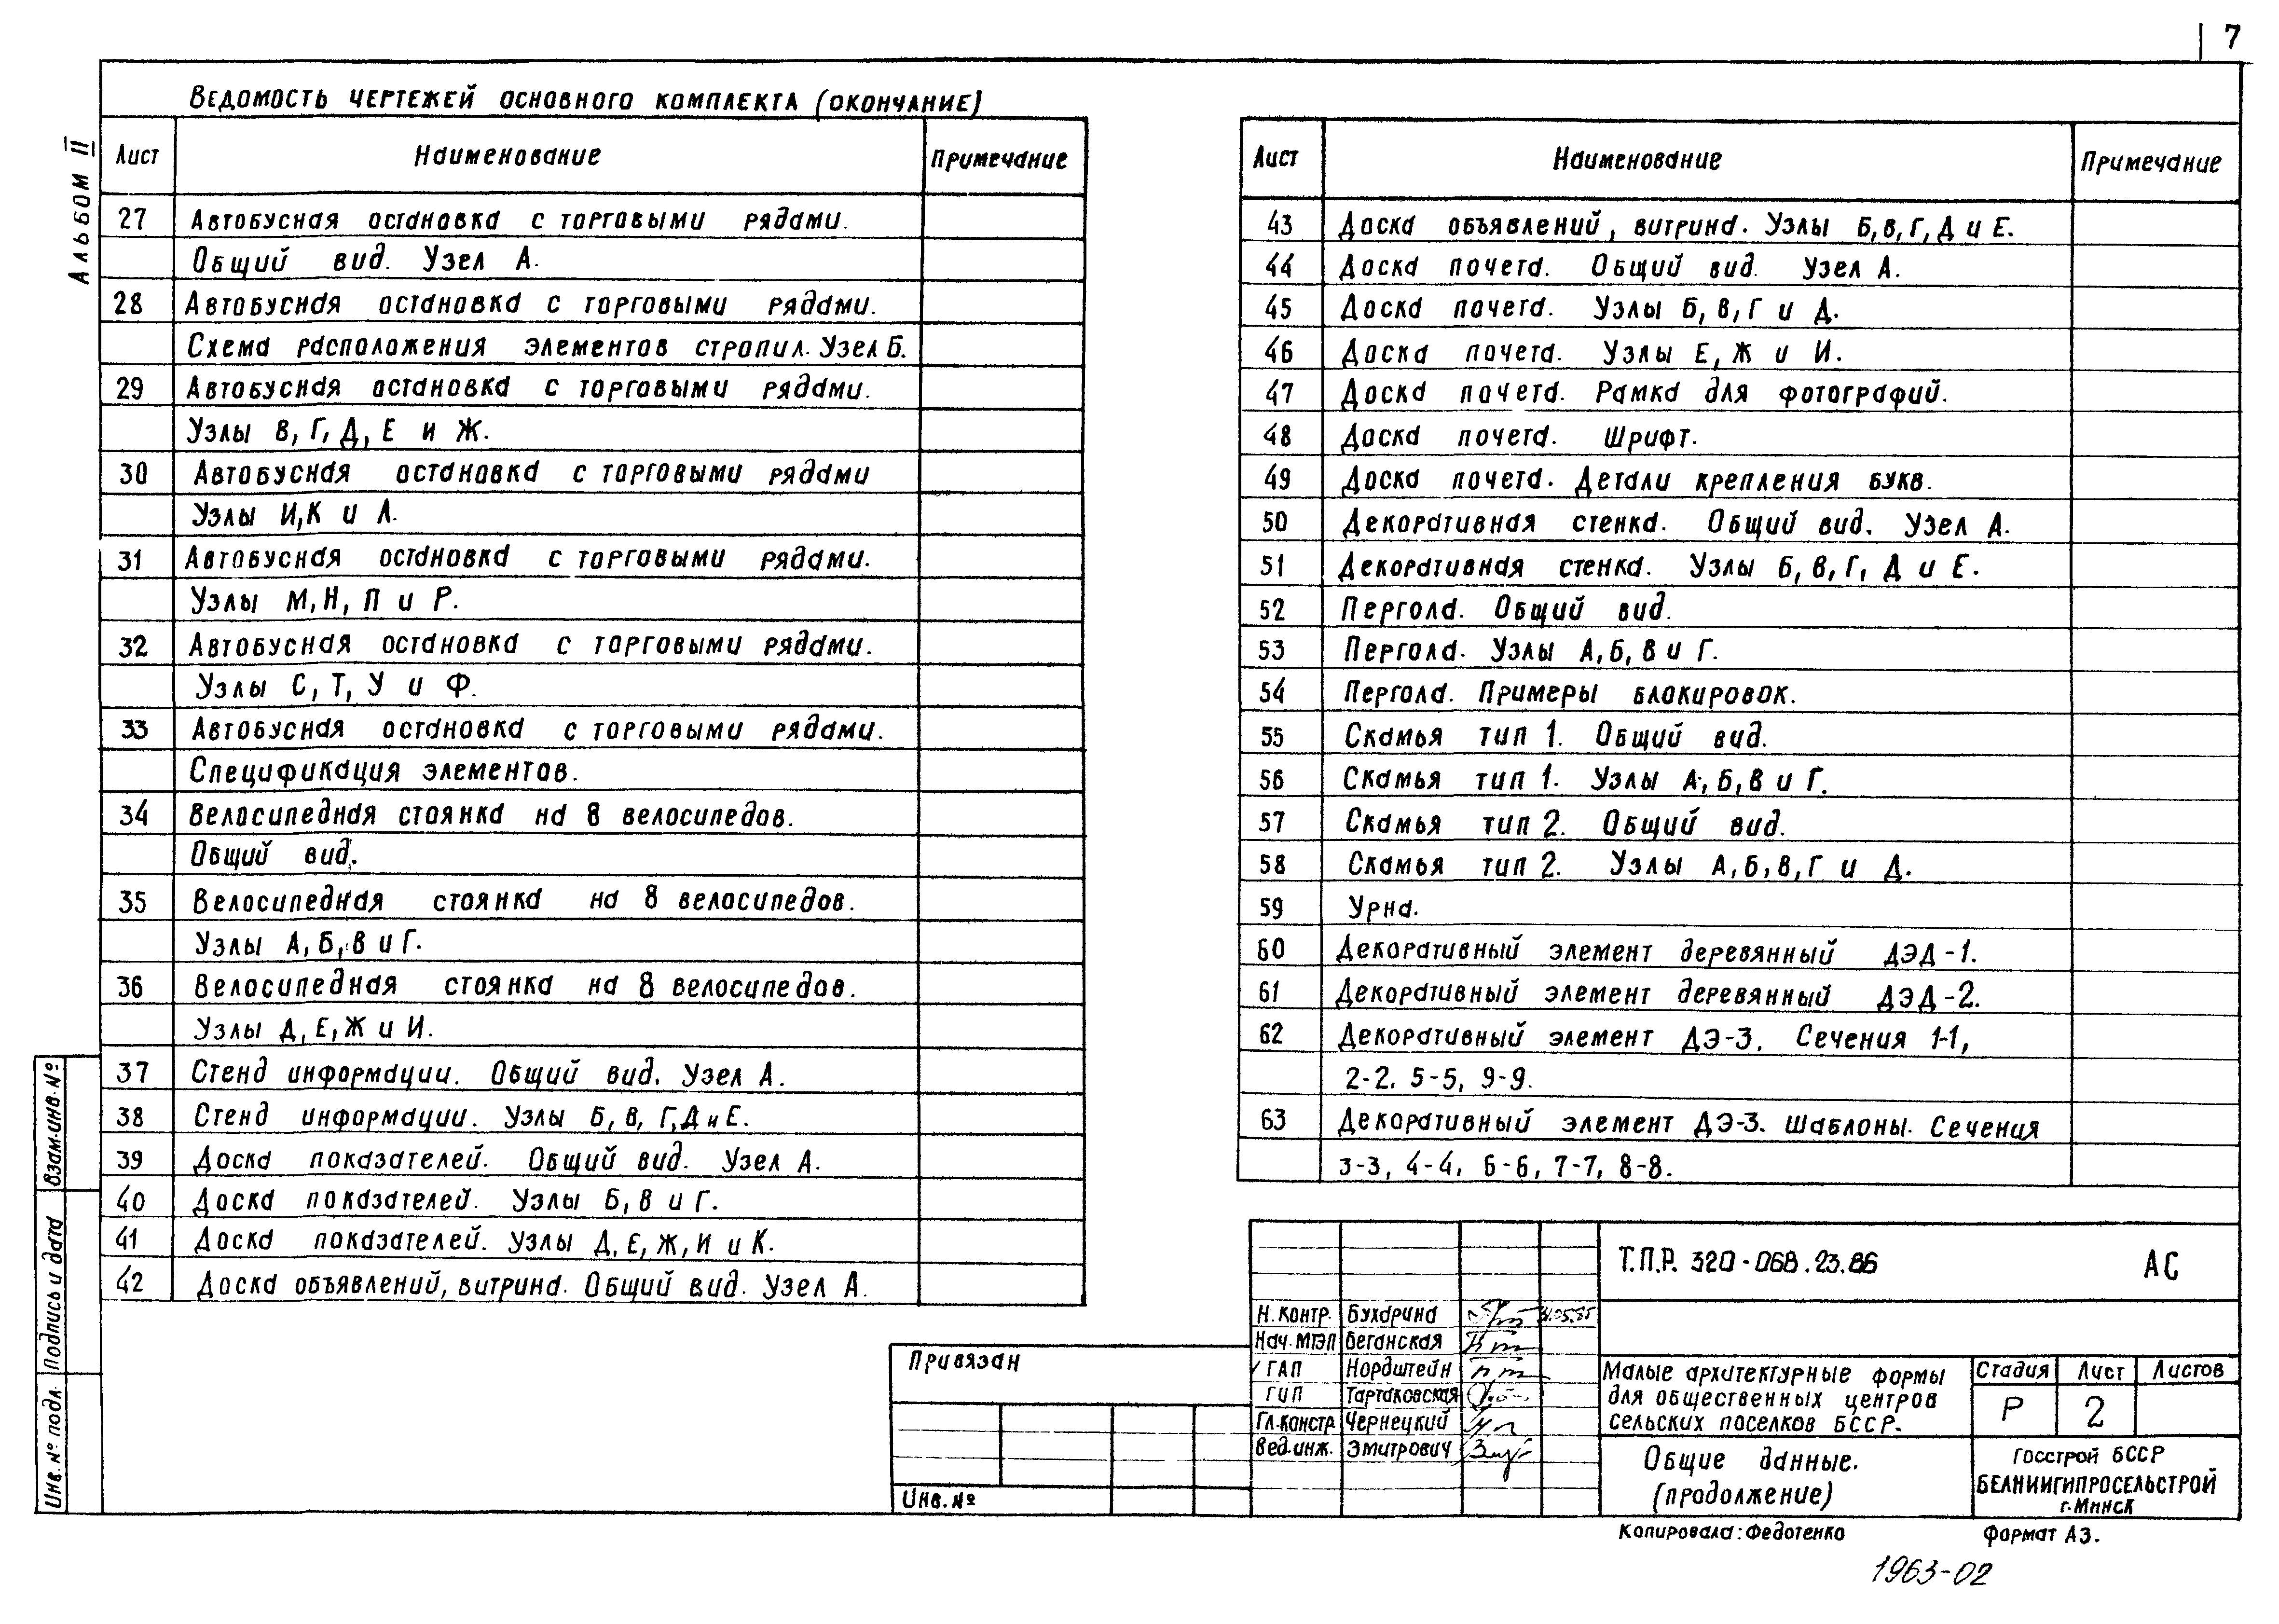 7
Альбом II
Ведомость чертежей основного комплекта (окончание)
Лист Наименование Примечание
27 Автобусная остановка с торговыми рядами.
Общий вид. Узел А.
28 Автобусная остановка с торговыми рядами.
Схема расположения элементов стропил. Узел Б.
29 Автобусная остановка с торговыми рядами.
Узлы В, Г, Д, Е и Ж.
30 Автобусная остановка с торговыми рядами
Узлы И, К и Л.
31 Автобусная остановка с торговыми рядами.
Узлы М, Н, П и Р.
32 Автобусная остановка с торговыми рядами.
Узлы С, Т, У и Ф.
33 Автобусная остановка с торговыми рядами.
Спецификация элементов.
34 Велосипедная стоянка на 8 велосипедов.
Общий вид.
35 Велосипедная стоянка на 8 велосипедов.
Узлы А, Б, В и Г.
36 Велосипедная стоянка на 8 велосипедов.
Узлы Д, Е, Ж и И.
37 Стенд информации. Общий вид. Узел А.
38 Стенд информации. Узлы Б, В, Г, Д и Е.
39 Доска показателей. Общий вид. Узел А.
40 Доска показателей. Узлы Б, В и Г.
41 Доска показателей. Узлы Д, Е, Ж, И и К.
42 Доска объявлений, витрина. Общий вид. Узел А.
Лист Наименование Примечание
43 Доска объявлений, витрина. Узлы Б, В, Г, Д и Е.
44 Доска почета. Общий вид. Узел А.
45 Доска почета. Узлы Б, В, Г и Д.
46 Доска почета. Узлы Е, Ж и И.
47 Доска почета. Рамка для фотографий.
48 Доска почета. Шрифт.
49 Доска почета. Детали крепления букв.
50 Декоративная стенка. Общий вид. Узел А.
51 Декоративная стенка. Узлы Б, В, Г, Д и Е.
52 Пергола. Общий вид.
53 Пергола. Узлы А, Б, В и Г.
54 Пергола. Примеры блокировок.
55 Скамья тип 1. Общий вид.
56 Скамья тип 1. Узлы А, Б, В и Г.
57 Скамья тип 2. Общий вид.
58 Скамья тип 2. Узлы А, Б, В, Г и Д.
59 Урна.
60 Декоративный элемент деревянный ДЭД-1.
61 Декоративный элемент деревянный ДЭД-2.
62 Декоративный элемент ДЭ-3. Сечения 1-1,
2-2, 5-5, 9-9.
63 Декоративный элемент ДЭ-3. Шаблоны. Сечения
3-3, 4-4, 6-6, 7-7, 8-8.
Взам.инв.№
Подпись и дата
Инв.№ подл.
Привязан
Инв.№
Н.контр. Бухарина 31.05.85
Нач.МТЭП Беганская
ГАП Нордштейн
ГИП Тартаковская
Гл.констр Чернецкий
Вед.инж. Змитрович
Т.П.Р. 320-068.23.86 АС
Малые архитектурные формы
для общественных центров
сельских поселков БССР.
Стадия Лист Листов
Р 2
Общие данные.
(продолжение)
Госстрой БССР
БЕЛНИИГИПРОСЕЛЬСТРОЙ
г.Минск
Копировала: Федотенко Формат А3.
1963-02